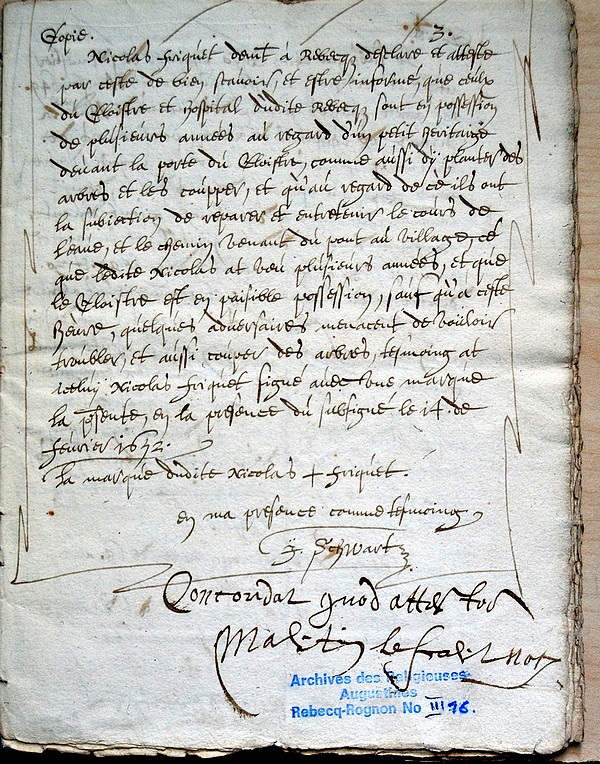 Copie. 3.
Nicolas friquet demt à Rebecq desclare et atteste
par ceste de bien scavoir, et estre informé, que ceux
du Cloistre et hospital dudite Rebecq sont en possession
de plusieurs années au regard d'un petit heritaige
devant la porte du Cloistre, comme aussi d'y planter des
arbres et les coupper, et qu'au regard de ce ils ont
la subiection de reparer et entretenir le cours de
l'eaue, et le chemin venant du pont au village, ce
que ledite Nicolas at veu plusieurs années, et que
le Cloistre est en paisible possession, sauf qu'a ceste
heure, quelques adversaires menacent de vouloir
troubler, et aussi couper des arbres, tesmoing at
iceluy Nicolas friquet signé avec une marque
la pnte, en la presence du subsigné le 14. de
febvrier 1652.
la marque dudite Nicolas + friquet.
en ma presence comme tesmoing
J. Schwartz
Concordat quod attestor
Archives des Religieuses
Augustines
Rebecq-Rognon No III 16.